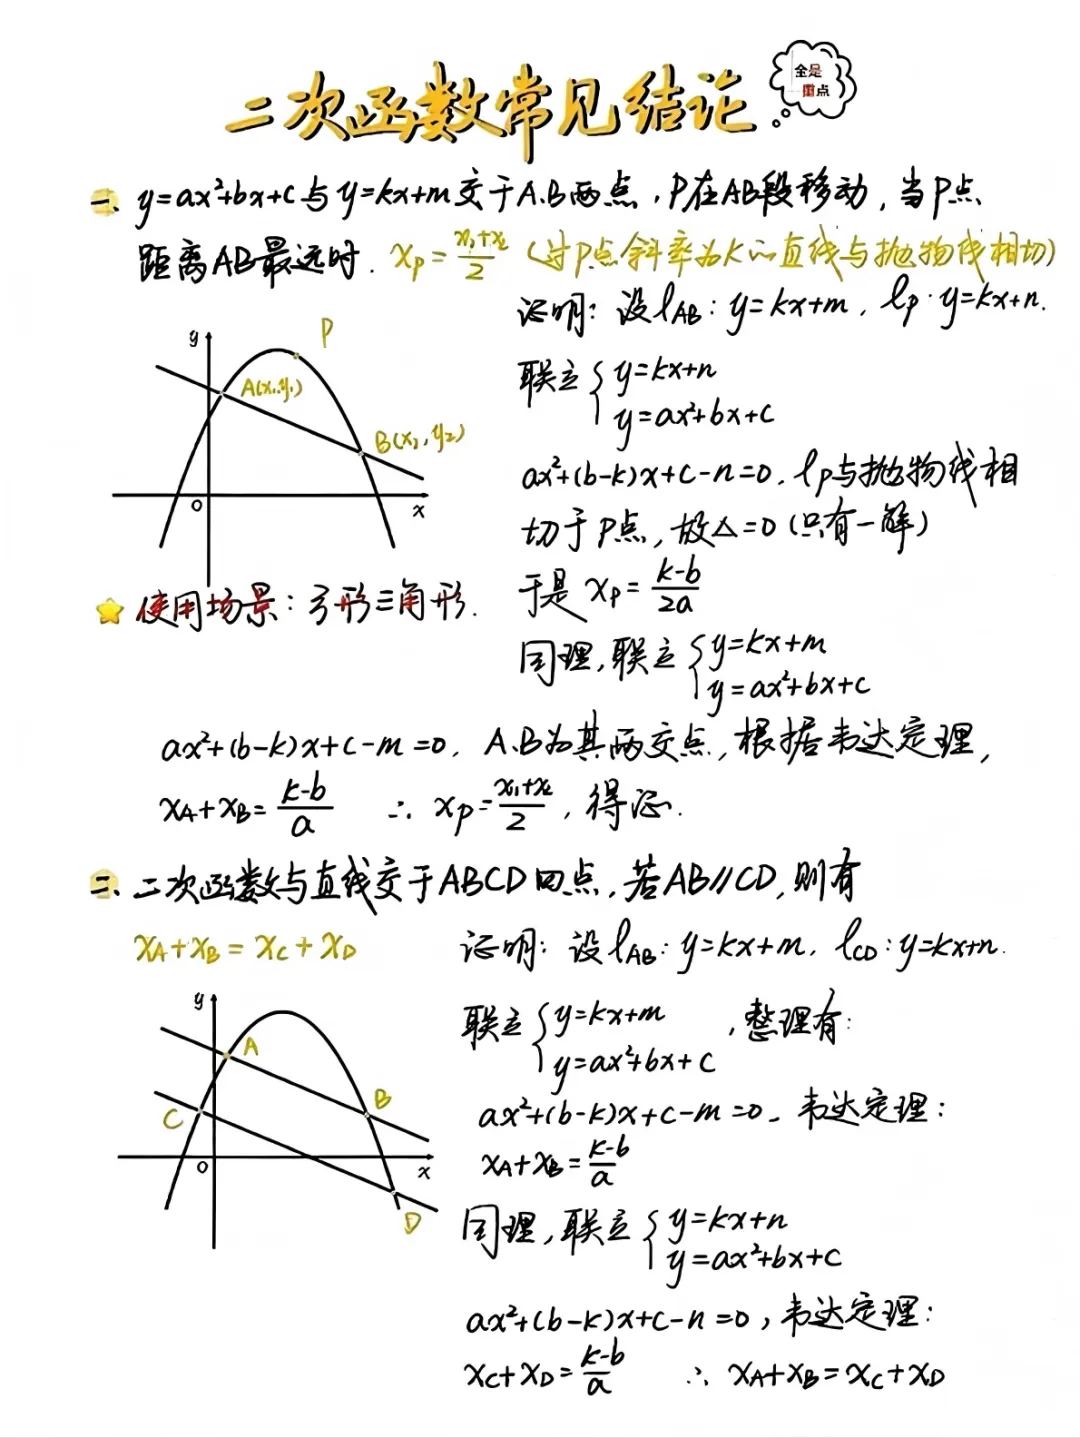 二次函数常见结论
全是
重点
一、y=ax²+bx+c与y=kx+m交于A.B两点,P在AB段移动,当P点
距离AB最远时. xp=x₁+x₂/2 (过P点斜率为k的直线与抛物线相切)
证明:设lAB:y=kx+m, lp:y=kx+n.
y
P
A(x₁,y₁)
B(x₂,y₂)
O
x
联立{y=kx+n
y=ax²+bx+c
ax²+(b-k)x+c-n=0, lp与抛物线相
切于P点,故△=0(只有一解)
于是xp=k-b/2a
使用场景:弓形三角形.
同理,联立{y=kx+m
y=ax²+bx+c
ax²+(b-k)x+c-m=0, A.B为其两交点,根据韦达定理,
xA+xB=k-b/a ∴xp=x₁+x₂/2,得证.
二、二次函数与直线交于ABCD四点,若AB∥CD,则有
xA+xB=xC+xD
证明:设lAB:y=kx+m, lCD:y=kx+n.
y
A
B
C
O
x
D
联立{y=kx+m
y=ax²+bx+c
,整理有:
ax²+(b-k)x+c-m=0. 韦达定理:
xA+xB=k-b/a
同理,联立{y=kx+n
y=ax²+bx+c
ax²+(b-k)x+c-n=0,韦达定理:
xC+xD=k-b/a ∴xA+xB=xC+xD